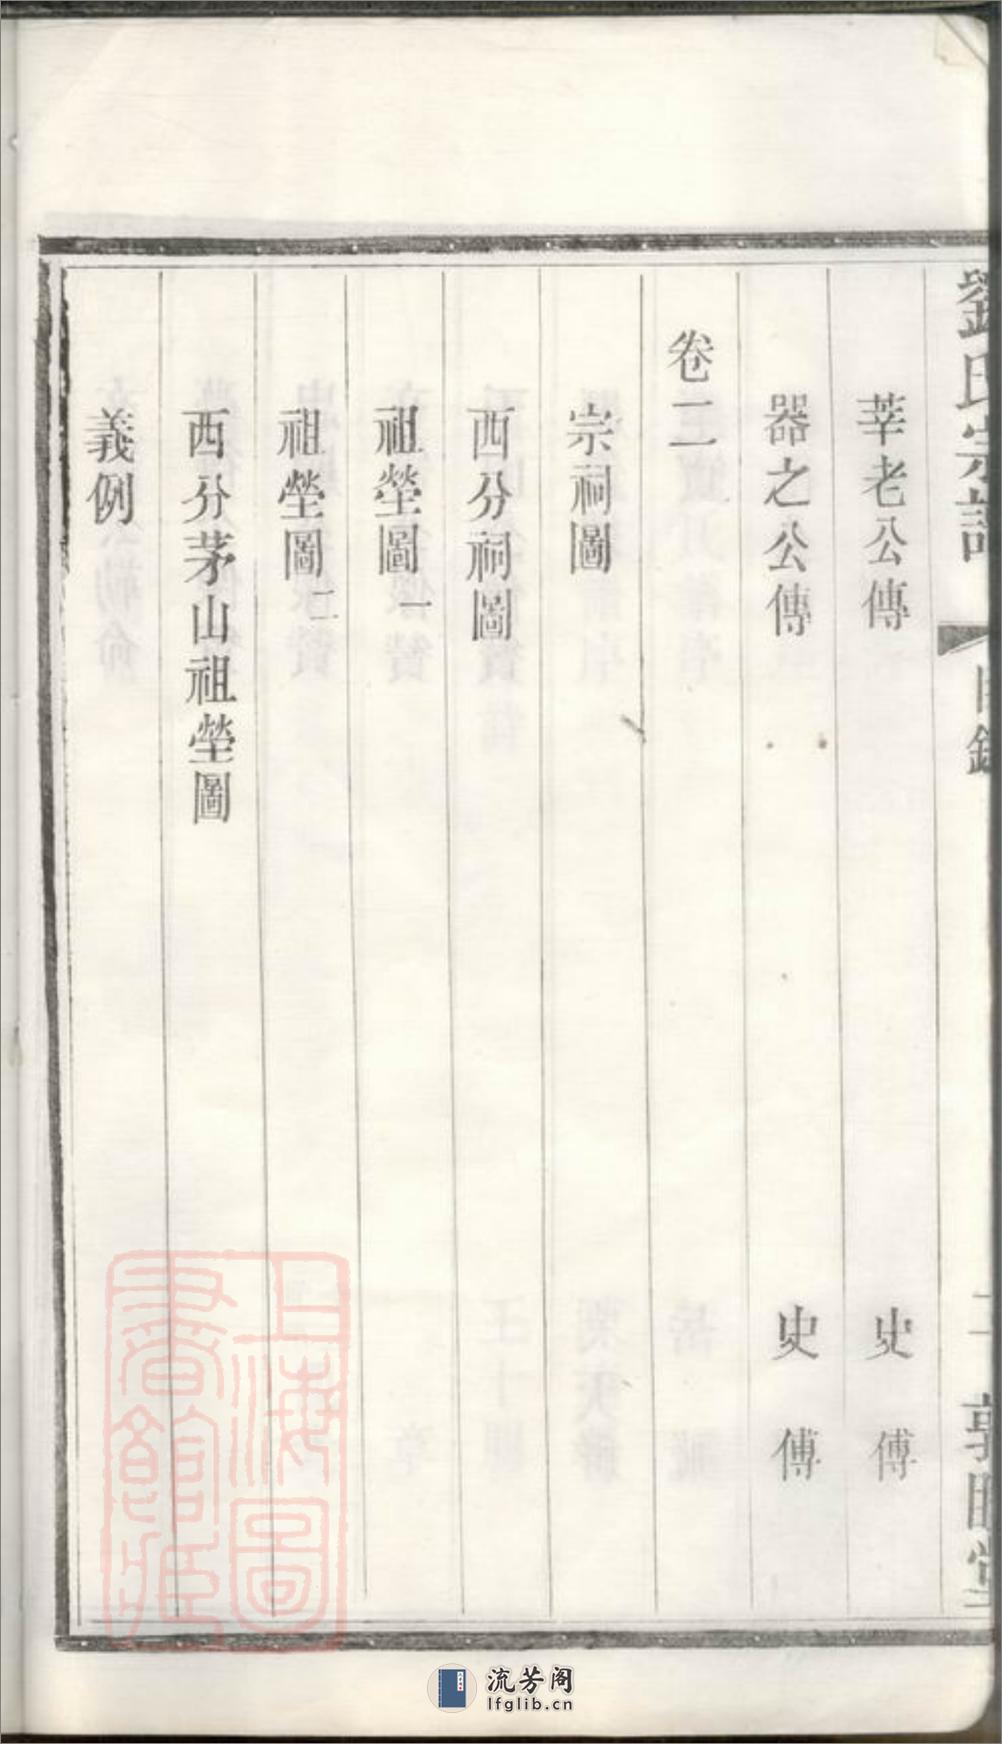 劉氏宗譜
目錄
二
莘老公傳 史傳
器之公傳 史傳
卷二
宗祠圖
西分祠圖
祖塋圖一
祖塋圖二
西分茅山祖塋圖
義例
上海圖書館藏
流芳阁
lfglib.cn